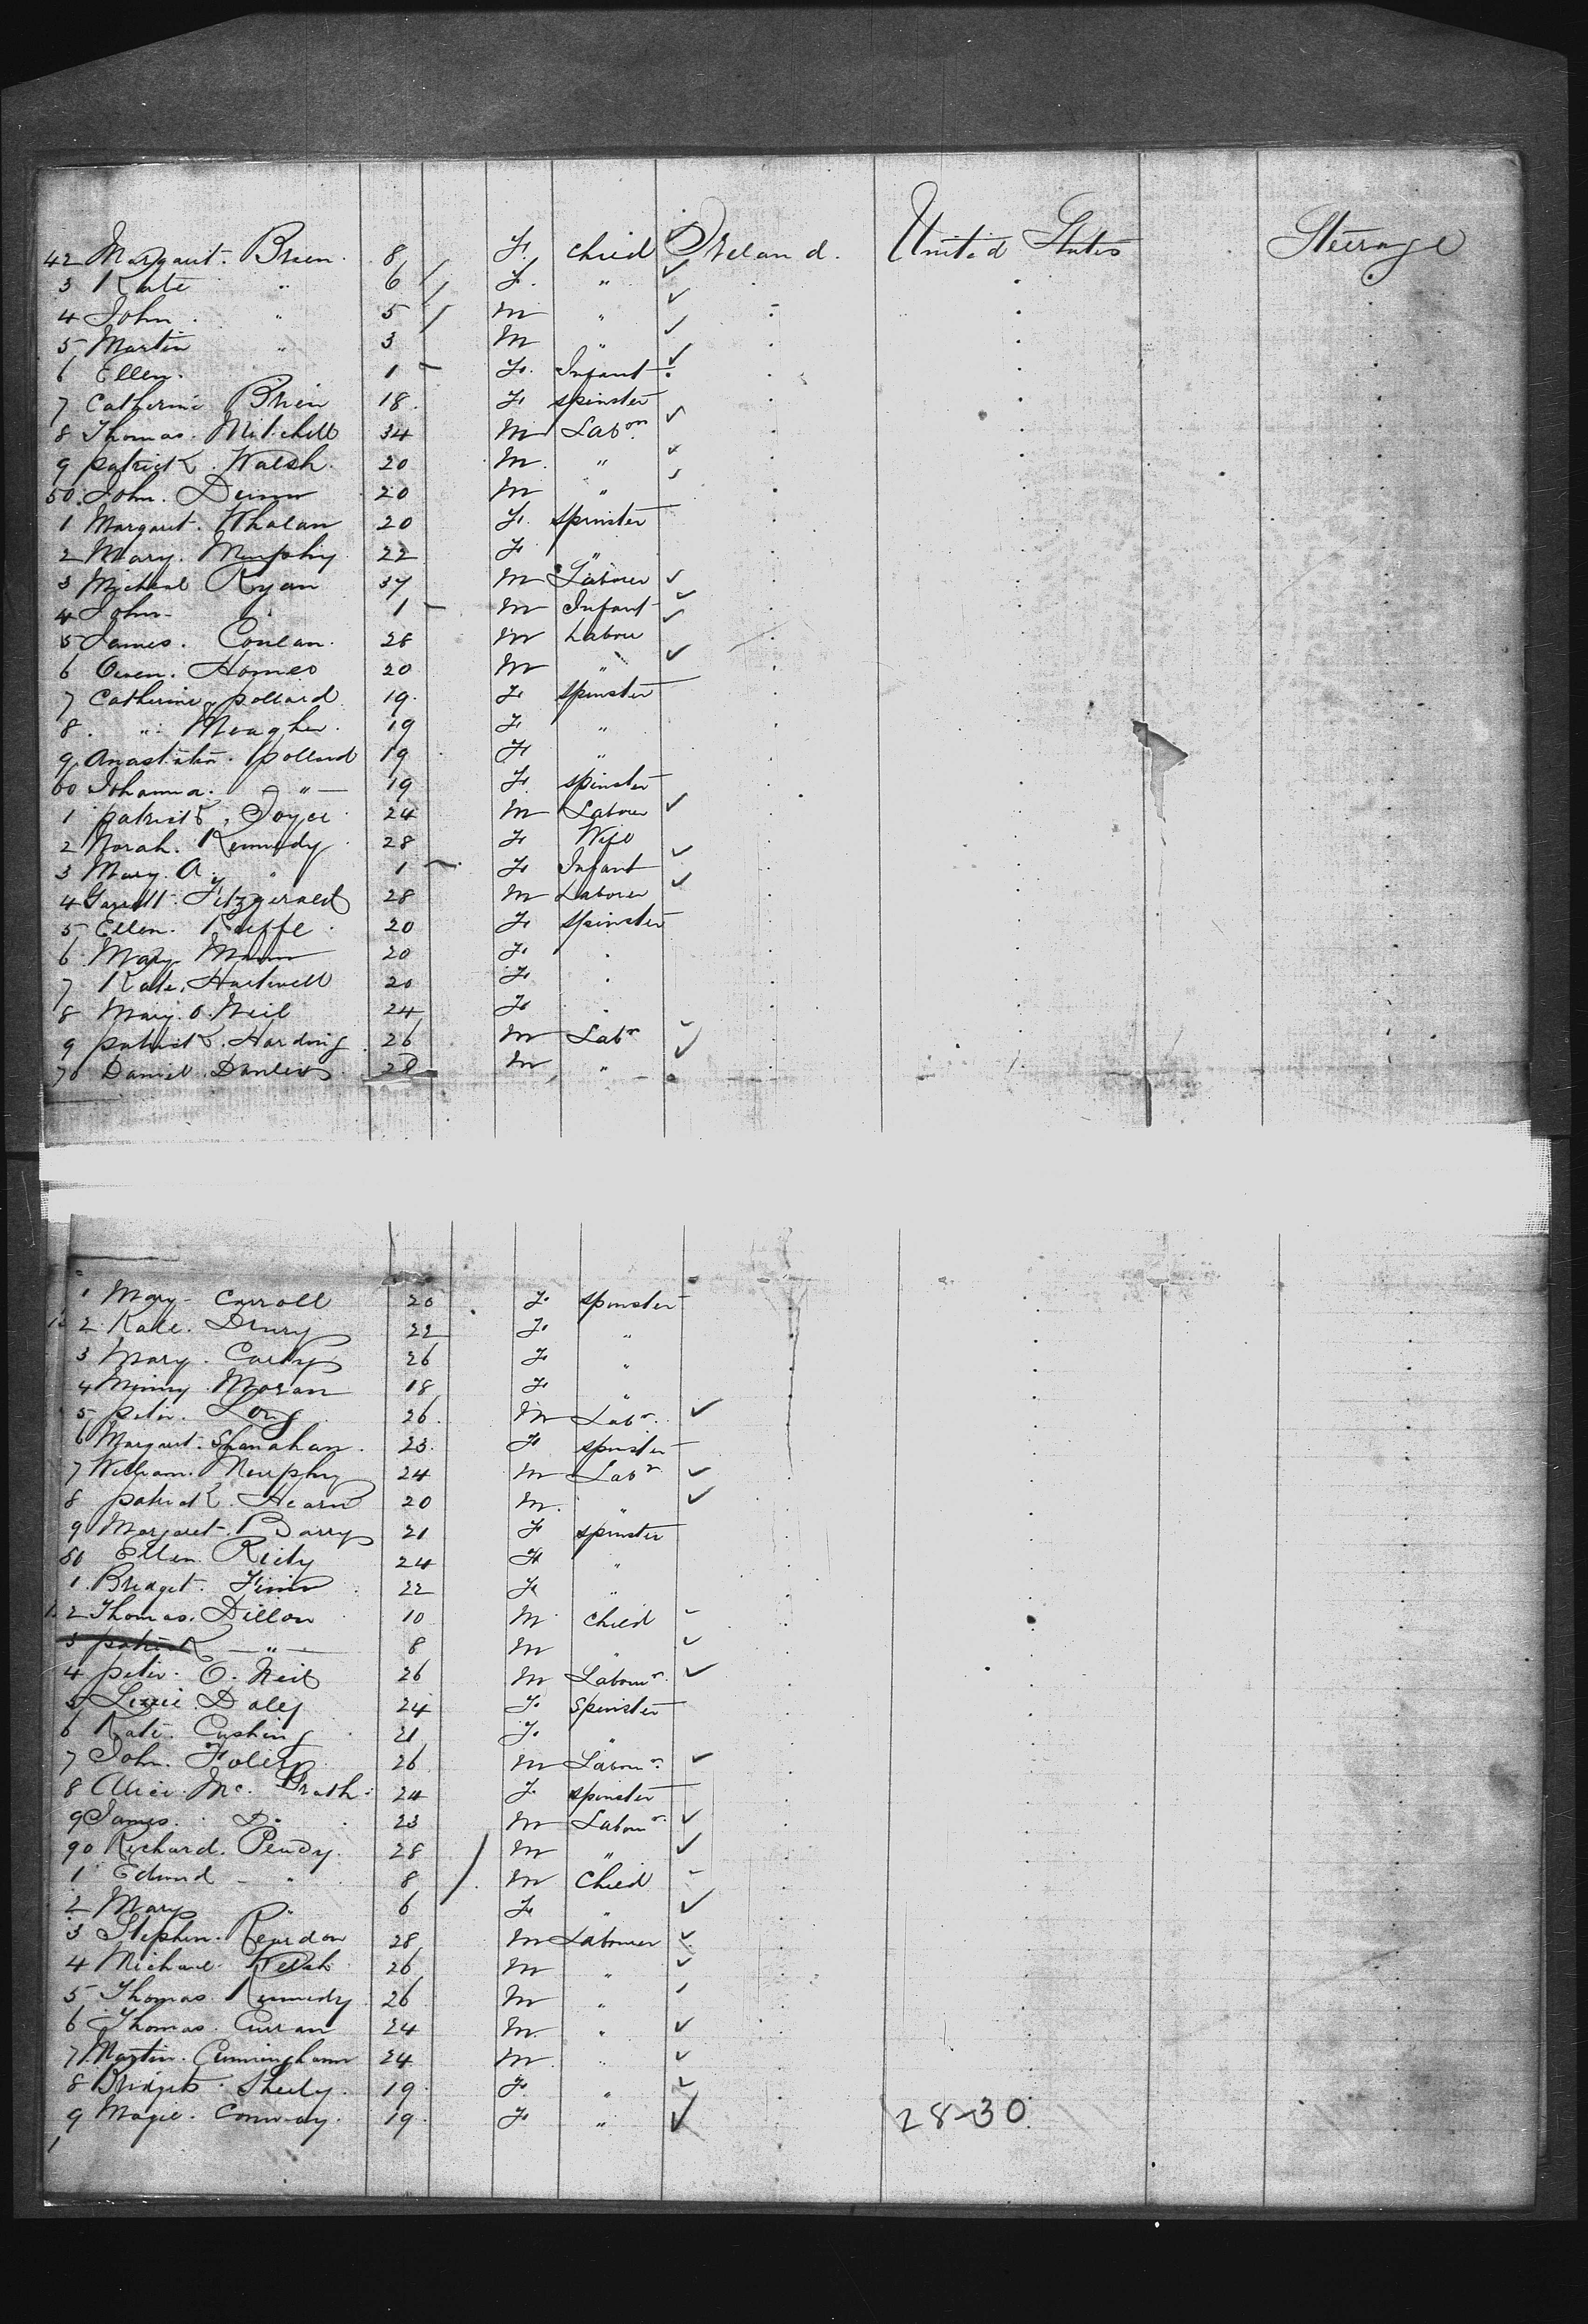 42 Margaret. Brien. 8 F. child Ireland. United States Steerage
3 Kate " 6 F. "
4 John. " 5 M "
5 Martin " 3 M "
6 Ellen. 1 F. Infant
7 Catherine Brien 18. F. spinster
8 Thomas. Mitchell 34 M Labor.
9 patrick. Walsh. 20 M. "
50. John. Dunn 20 M "
1 Margaret. Whalan 20 F. spinster
2 Mary. Murphy. 22 F. "
3 Micheal Ryan 37 M Laborer
4 John " 1 M Infant
5 James. Conlan. 28 M Labour
6 Owen. Homes 20 M "
7 Catherine pollard 19. F. spinster
8. " Meagher. 19 F. "
9. Anastatia. pollard 19 F. "
60 Johanna. " 19 F. spinster
1 patrick. Joyce 24 M Laborer
2 Norah. Kennedy 28 F. Wife
3 Mary. A. " 1 F. Infant
4 Garrett. Fitzgerald 28 M Laborer
5 Ellen. Keiffe. 20 F. spinster
6 Mary 20 F. .
7 Kate. Hartwell 20 F. .
8 Mary. O. Neil 24 F. .
9 patrick. Harding 26 M Labr
70 Daniel. 28 M "
1 Mary. Carroll 20 F. spinster
2. Kate. Drury 22 F. "
3 Mary. 26 F. "
4 Minny. Moran 18 F. "
5 peter. Long 26. M Labr.
6 Margaret. Shanahan. 23. F. spinster
7 William. Murphy 24 M Labr
8 patrick. Hearn 20 M. "
9 Margaret. Barry 21 F. spinster
80 Ellen. Reily 24 F. "
1. Bridget. Finn 22 F. "
2 Thomas. Dillon 10 M. child
3 patrick " 8 M "
4 peter. O. Neil 26 M Labour.
5 Lizzie. Daley 24 F. Spinster
6 Kate. Cushing 21 F. "
7 John. Foley 26 M Labour.
8 Alice. Mc. Grath. 24 F. spinster
9 James. Do 23 M Labour.
90 Richard. Pendy. 28 M "
1 Edward " 8 M Child
2 Mary " 6 F. "
3 Stephen. Reardon 28 M Labourer
4 Michael Welsh 26 M "
5 Thomas. Kennedy. 26 M "
6 Thomas. Curran 24 M. "
7. Martin. Cunningham 24 M. "
8 Bridget. Sheehy. 19. F. "
9 Magie. Conway. 19. F. " 28-30.